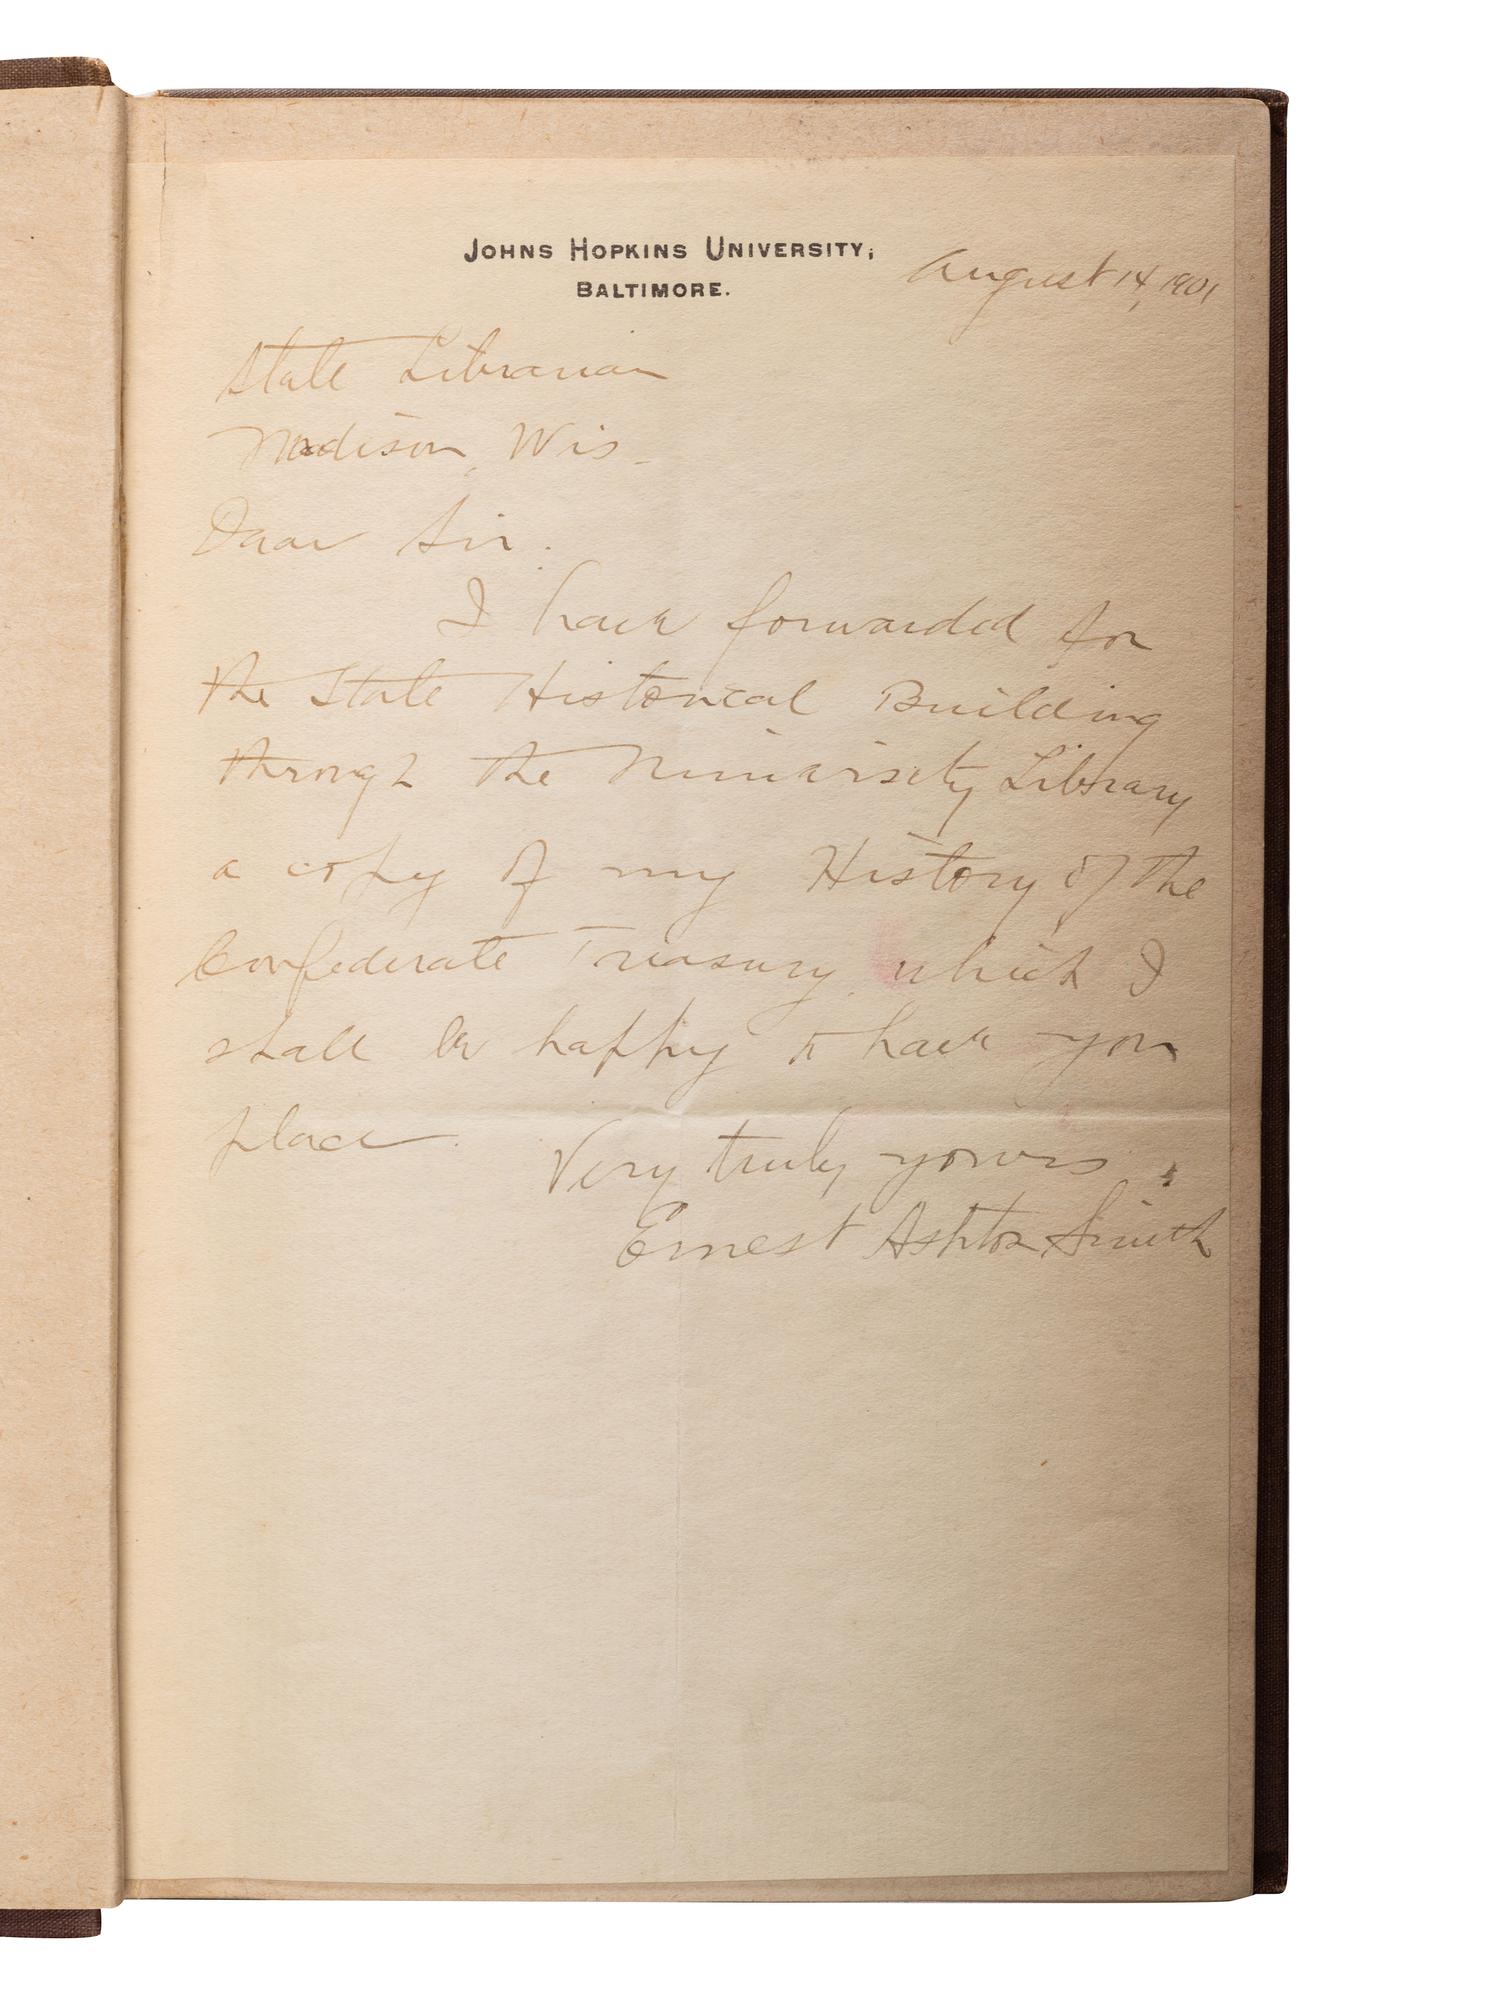 JOHNS HOPKINS UNIVERSITY,
BALTIMORE.
August 14, 1901
State Librarian
Madison, Wis.
Dear Sir.
I have forwarded for
the State Historical Building
through the University Library
a copy of my History of the
Confederate Treasury which I
shall be happy to have you
place.
Very truly yours,
Ernest Ashton Smith